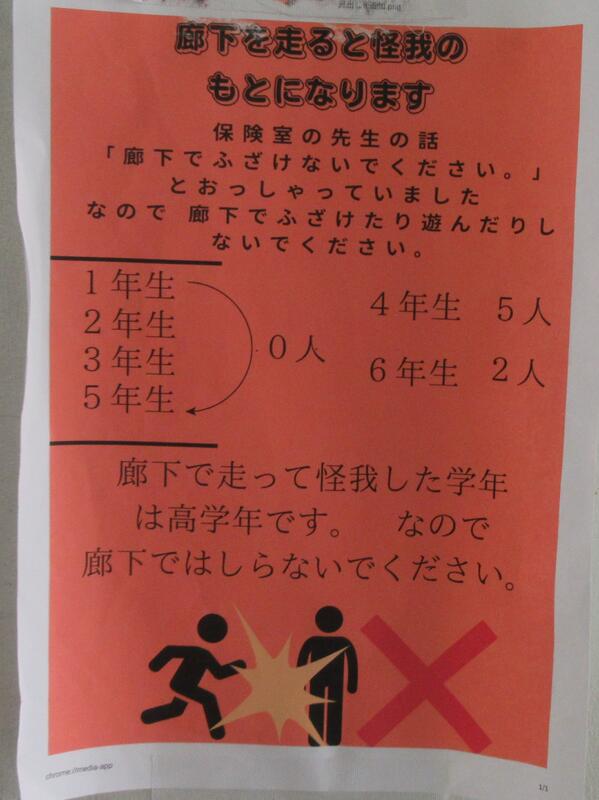 廊下を走ると怪我の
もとになります
保険室の先生の話
「廊下でふざけないでください。」
とおっしゃっていました
なので 廊下でふざけたり遊んだりし
ないでください。
1年生
2年生
3年生
5年生
0人
4年生 5人
6年生 2人
廊下で走って怪我した学年
は高学年です。 なので
廊下ではしらないでください。
chrome://media-app
1/1